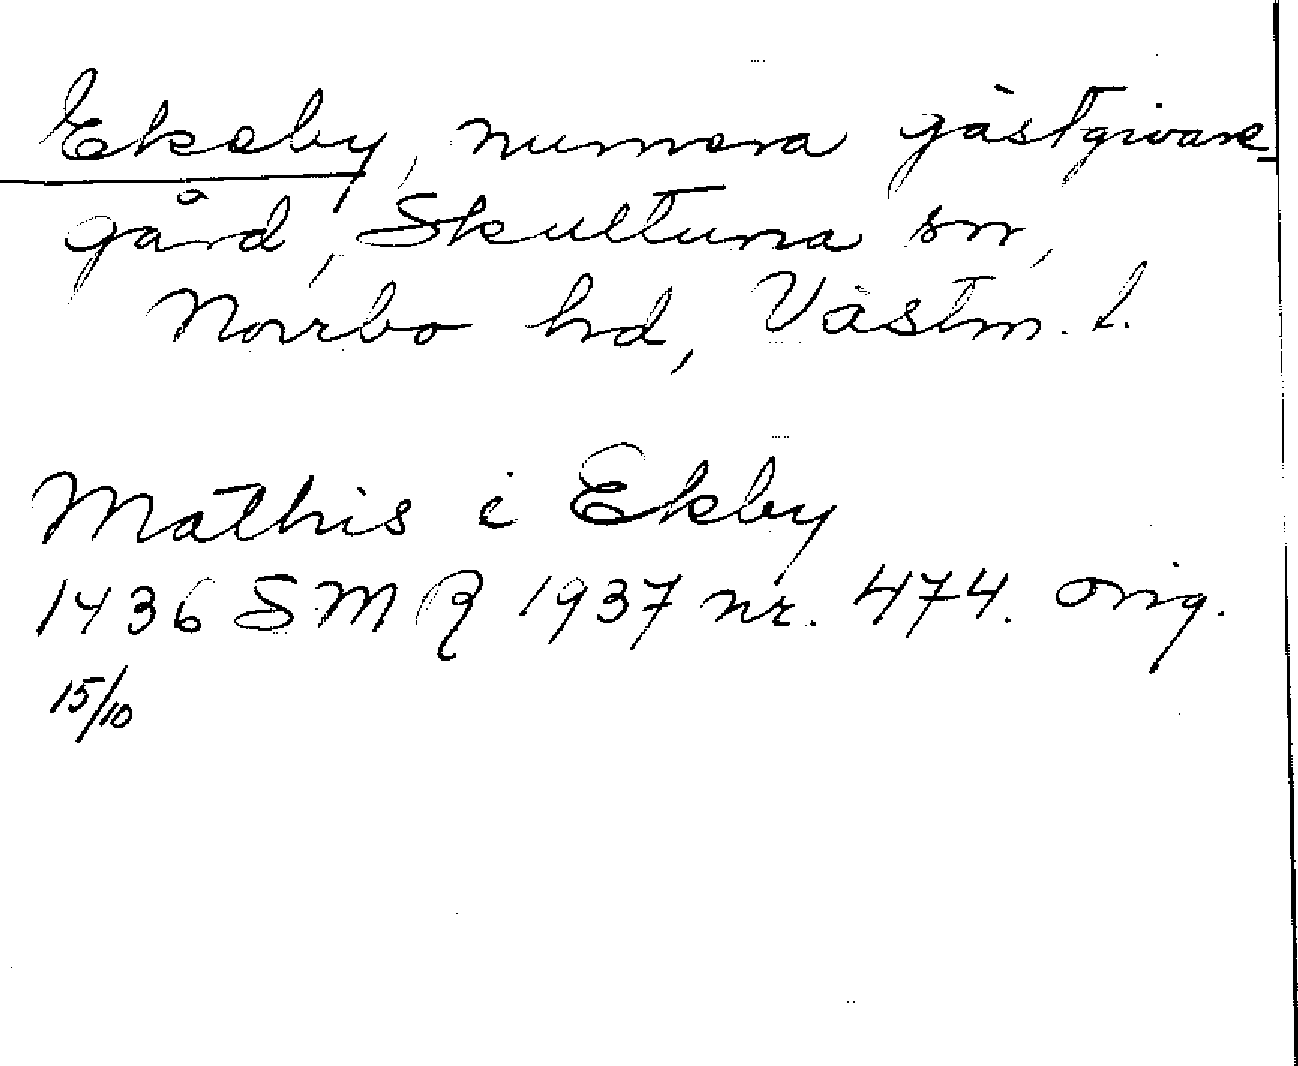 Ekeby, numera gästgivare-
gård, Skultuna sn,
Norrbo hd, Västm. l.
Mathis i Ekby
1436 SMR 1937 nr. 474. orig.
15/10